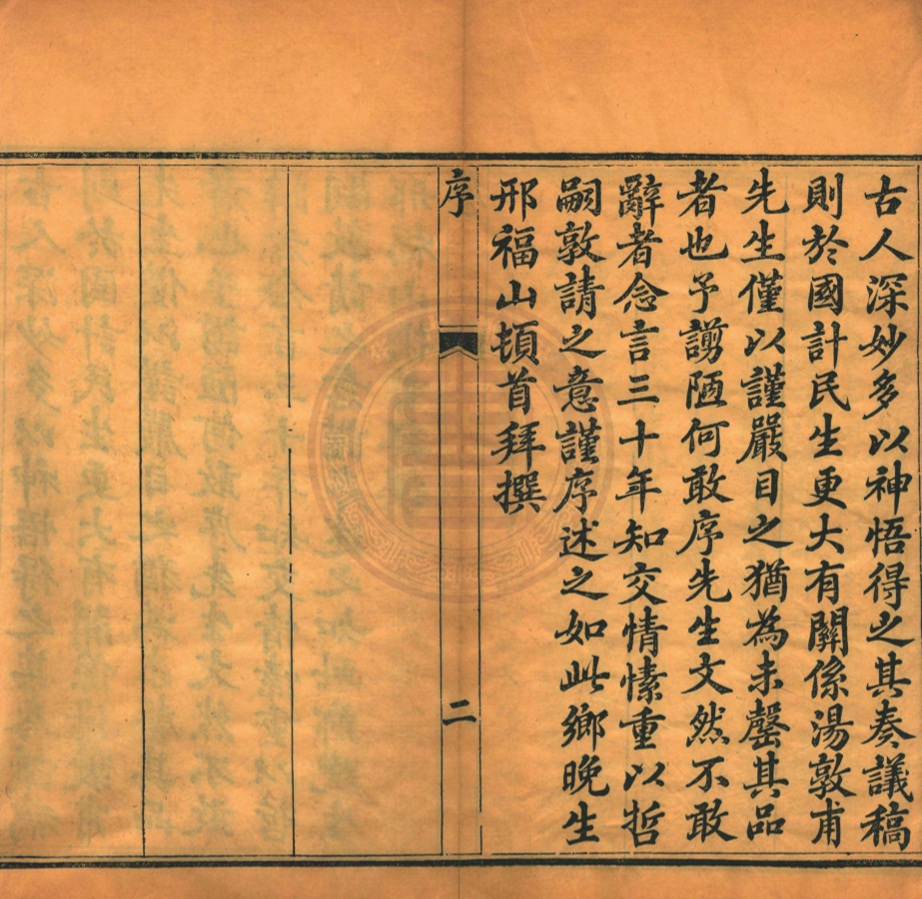 古人深妙多以神悟得之其奏議稿
則於國計民生更大有關係湯敦甫
先生僅以謹嚴目之猶為未罄其品
者也予謭陋何敢序先生文然不敢
辭者念言三十年知交情愫重以哲
嗣敦請之意謹序述之如此鄉晚生
邢福山頓首拜撰
序
二